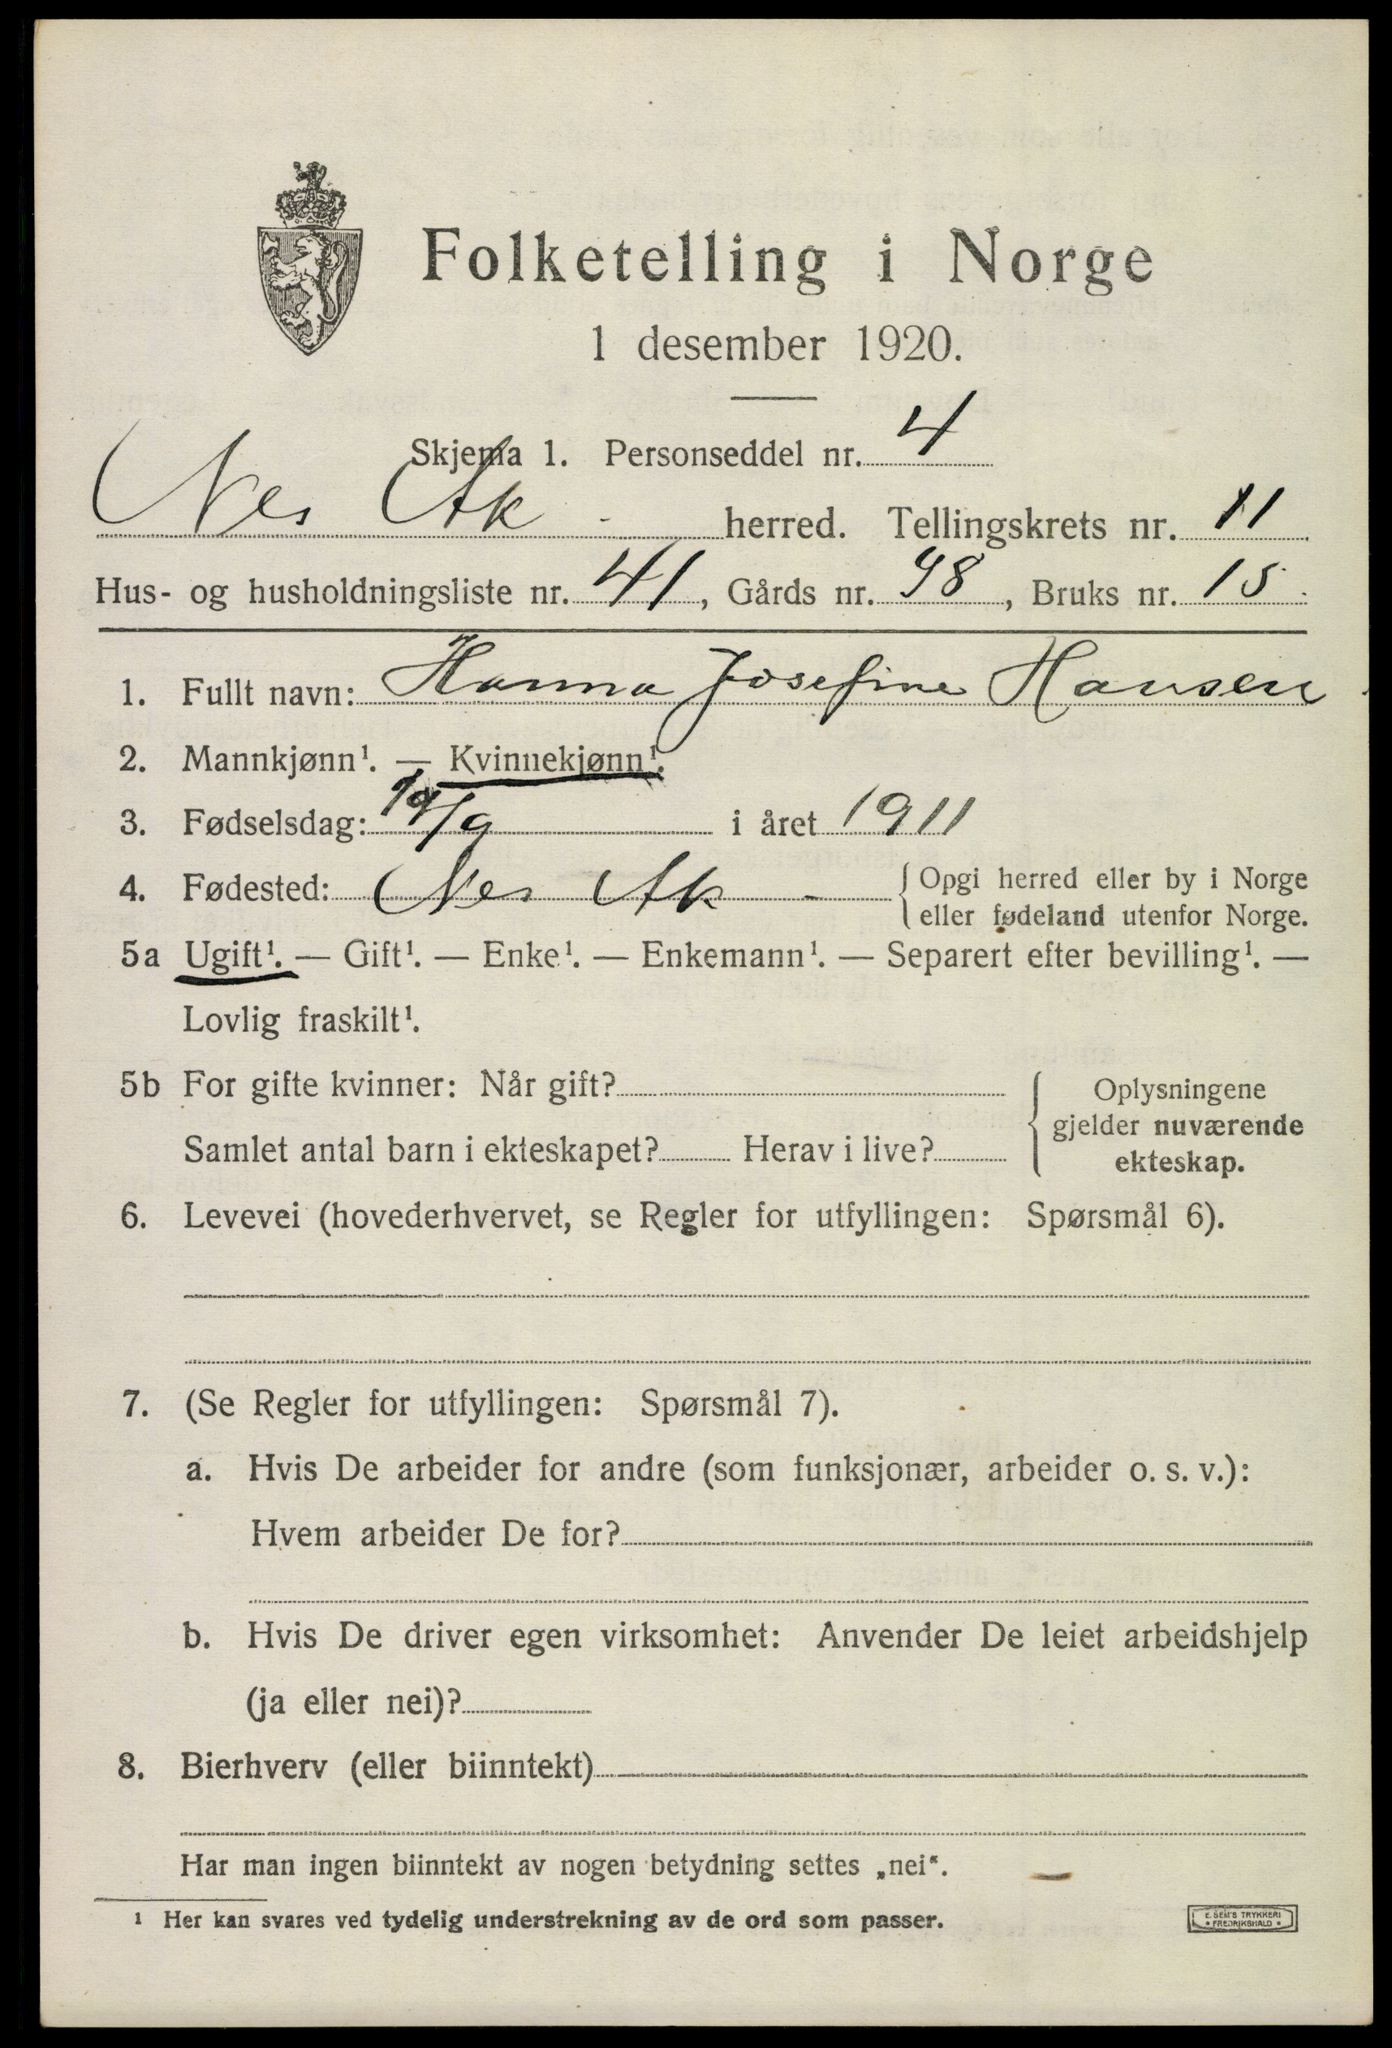 Folketelling i Norge
1 desember 1920.
Skjema 1. Personseddel nr. 4
Nes Ak herred. Tellingskrets nr. 11
Hus- og husholdningsliste nr. 41, Gårds nr. 98, Bruks nr. 15
1. Fullt navn: Hanna Josefine Hansen
2. Mannkjønn¹. — Kvinnekjønn¹.
3. Fødselsdag: 19/9 i året 1911
4. Fødested: Nes Ak { Opgi herred eller by i Norge
eller fødeland utenfor Norge.
5a Ugift¹. — Gift¹. — Enke¹. — Enkemann¹. — Separert efter bevilling¹. —
Lovlig fraskilt¹.
5b For gifte kvinner: Når gift?
Samlet antal barn i ekteskapet? Herav i live?
Oplysningene
gjelder nuværende
ekteskap.
6. Levevei (hovederhvervet, se Regler for utfyllingen: Spørsmål 6).
7. (Se Regler for utfyllingen: Spørsmål 7).
a. Hvis De arbeider for andre (som funksjonær, arbeider o. s. v.):
Hvem arbeider De for?
b. Hvis De driver egen virksomhet: Anvender De leiet arbeidshjelp
(ja eller nei)?
8. Bierhverv (eller biinntekt)
Har man ingen biinntekt av nogen betydning settes „nei“.
¹ Her kan svares ved tydelig understrekning av de ord som passer.
E. SEM'S TRYKKERI
• FREDRIKSHALD •